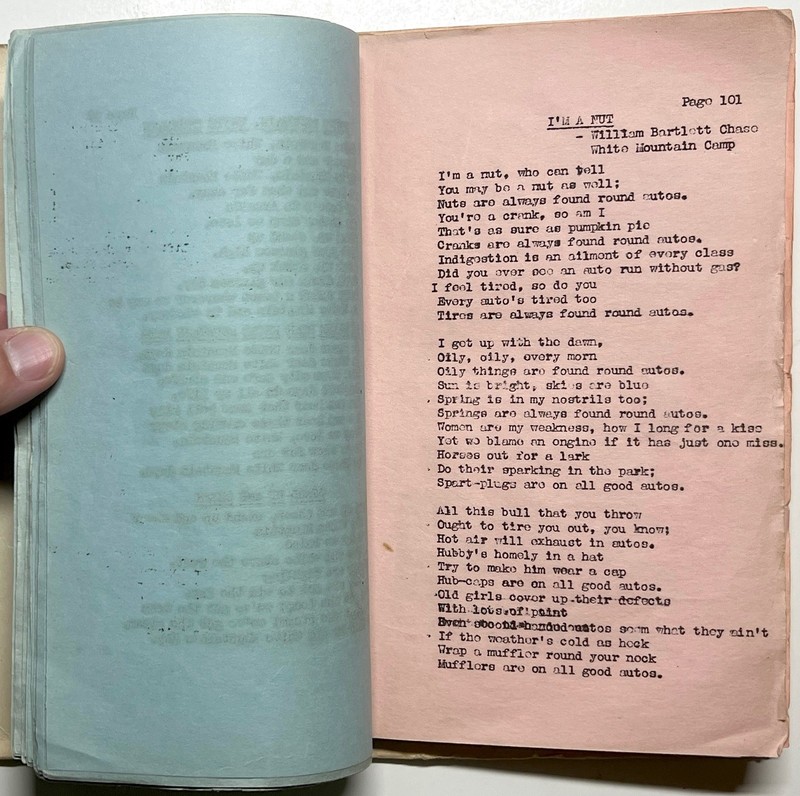 Page 101
I'M A NUT
- William Bartlett Chase
White Mountain Camp
I'm a nut, who can tell
You may be a nut as well;
Nuts are always found round autos.
You're a crank, so am I
That's as sure as pumpkin pie
Cranks are always found round autos.
Indigestion is an ailment of every class
Did you ever see an auto run without gas?
I feel tired, so do you
Every auto's tired too
Tires are always found round autos.
I get up with the dawn,
Oily, oily, every morn
Oily things are found round autos.
Sun is bright, skies are blue
Spring is in my nostrils too;
Springs are always found round autos.
Women are my weakness, how I long for a kiss
Yet we blame an engine if it has just one miss.
Horses out for a lark
Do their sparking in the park;
Spart-plugs are on all good autos.
All this bull that you throw
Ought to tire you out, you know;
Hot air will exhaust in autos.
Hubby's homely in a hat
Try to make him wear a cap
Hub-caps are on all good autos.
Old girls cover up their defects
With lots of paint
Even autos seem what they ain't
If the weather's cold as heck
Wrap a muffler round your neck
Mufflers are on all good autos.